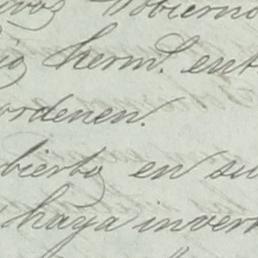 Gobierno
herm.
ordenen.
bierto en su
haya inver